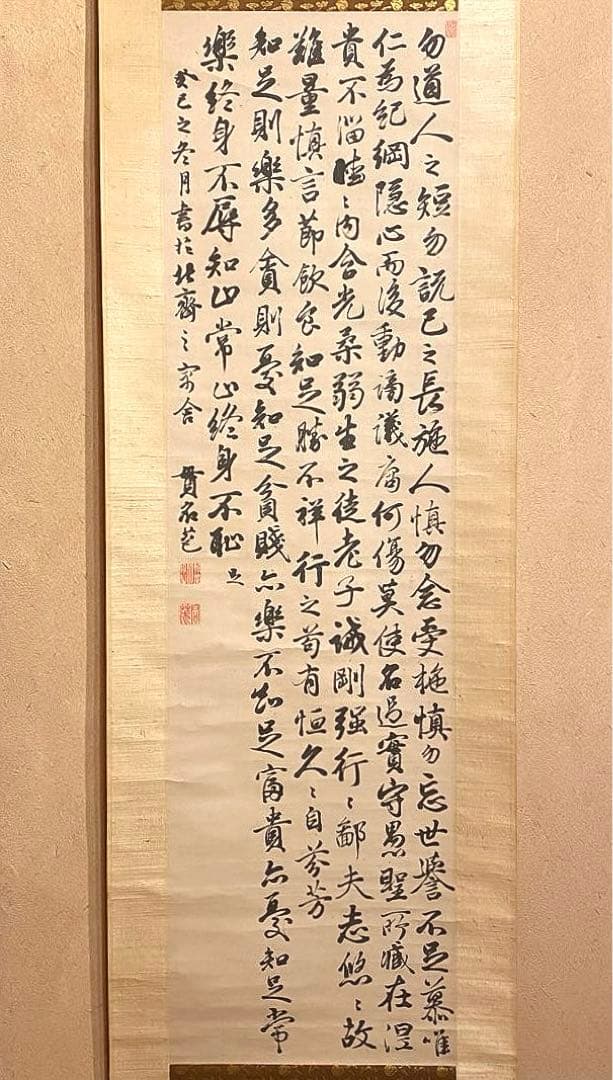 勿道人之短勿說己之長施人慎勿念受施慎勿忘世譽不足慕唯
仁為紀綱隱心而後動謗議庸何傷莫使名過實守愚聖所臧在涅
貴不淄曖〻內含光柔弱生之徒老子誡剛強行〻鄙夫志悠〻故
難量慎言節飲食知足勝不祥行之苟有恒久〻自芬芳
知足則樂多貪則憂知足貧賤亦樂不知足富貴亦憂知足常
樂終身不辱知止常止終身不恥
癸巳之冬月書於北齋之舍 貫名苞